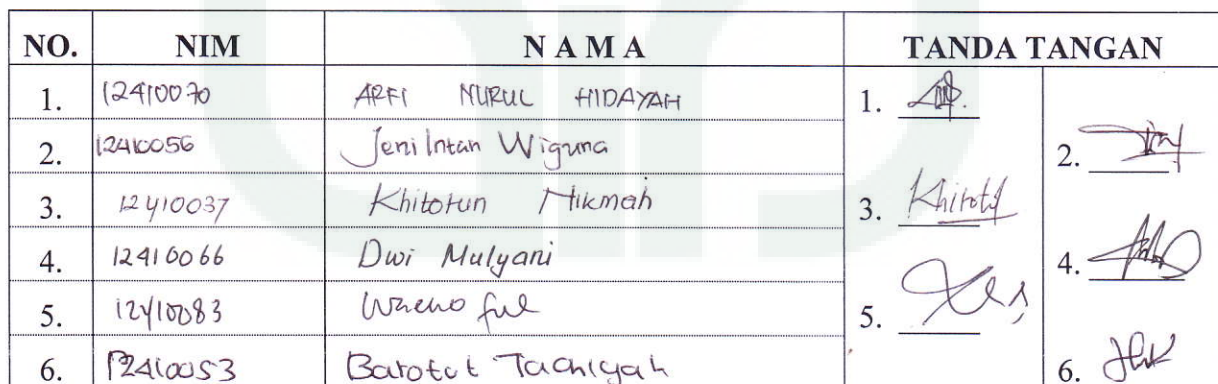 NO. NIM N A M A TANDA TANGAN
1. 12410070 ARFI NURUL HIDAYAH 1.
2. 12410056 Jeni Intan Wiguna 2.
3. 12410037 Khitotun Hikmah 3. Khitot
4. 12410066 Dwi Mulyani 4.
5. 12410083 5.
6. 12410053 Barotut Taqhiyah 6.